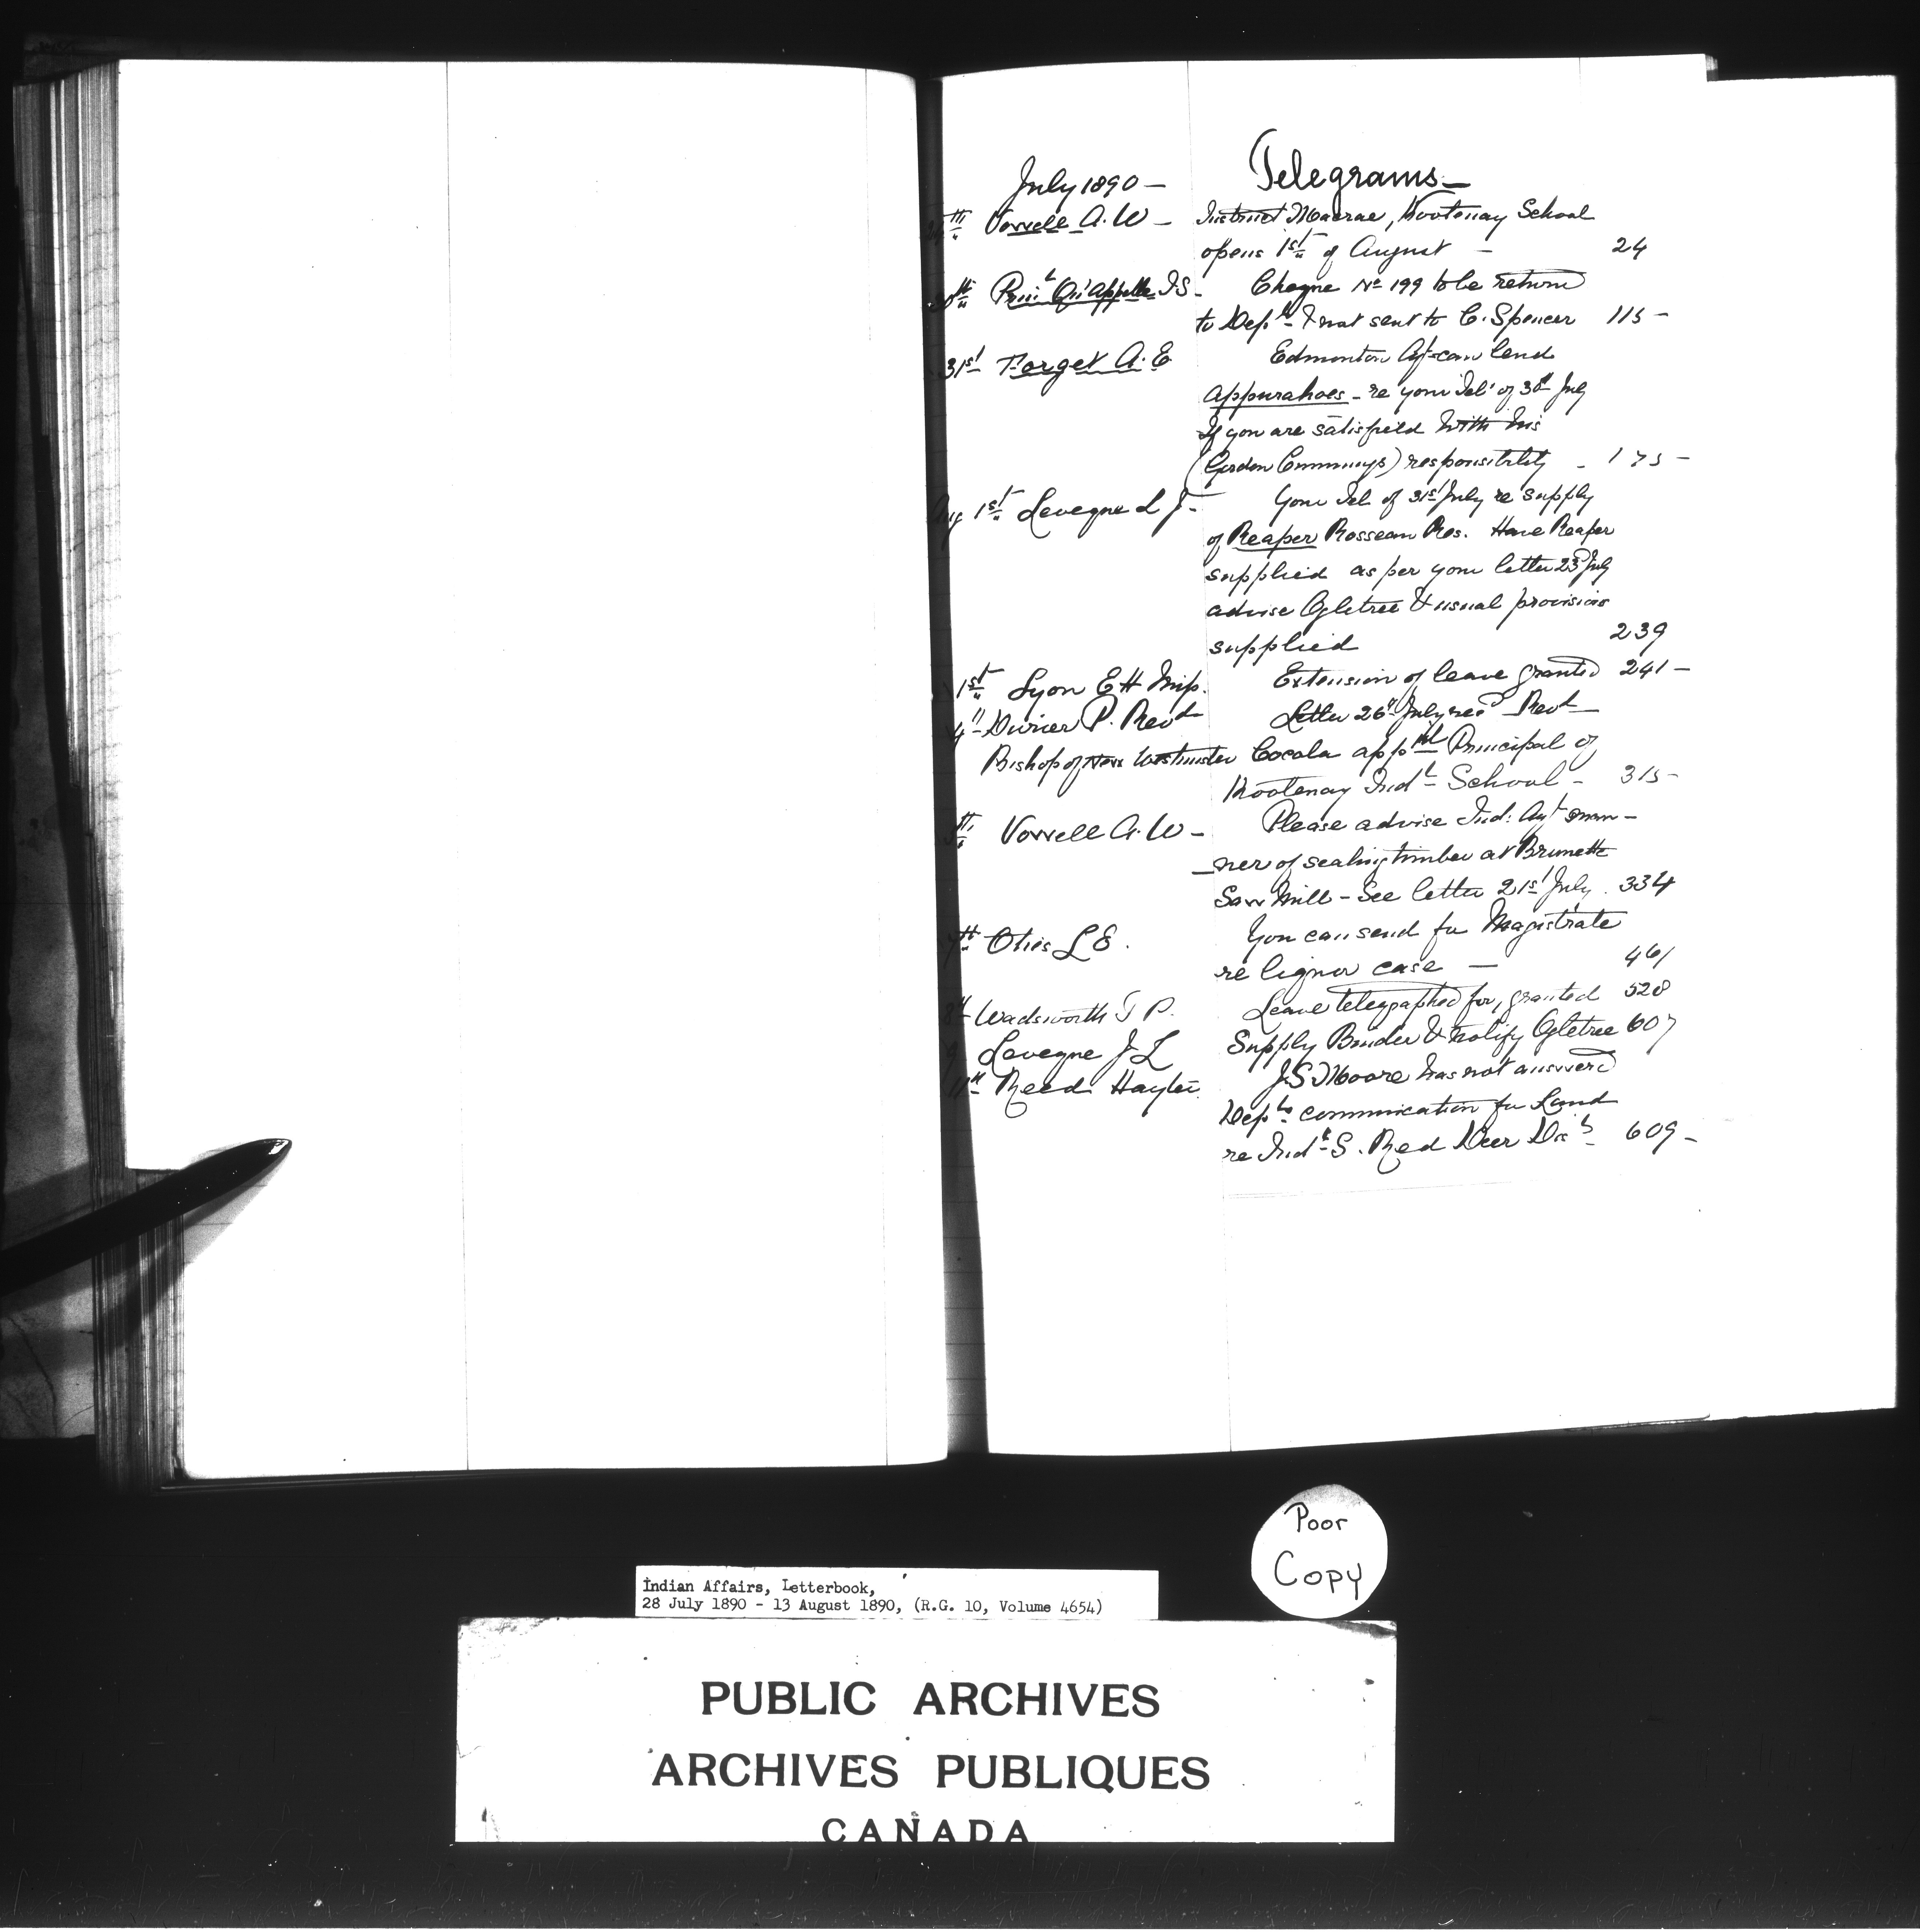 Telegrams —
July 1890 —
th Vowell A. W — Instruct Macrae, Kootenay School
opens 1st of August — 24
30th Prinl Qu'Appelle I.S. Cheque No 199 to be return
to Dept — & not sent to C. Spencer 115 —
31st Forget A. E Edmonton Agt can lend
Appurahoes — re your Tel of 30th July
If you are satisfied with his
(Gordon Cummings) responsibility — 175 —
Aug 1st Levegne L J — Your Tel of 31st July re supply
of Reaper Rosseau Res. Have Reaper
supplied as per your letter 23d July
advise Ogletree & usual provisions
supplied 239
1st Lyon E H Insp. Extension of leave granted 241 —
4th Durier P. Revd Letter 26th July recd Revd
Bishop of New Westminster Cocola appntd Principal of
Kootenay Indl School — 315 —
th Vowell A. W — Please advise Ind: Agt man —
— ner of scaling timber at Brunette
Saw Mill — See letter 21st July. 334
7th Oties L E. You can send for Magistrate
re liquor case — 461
8th Wadsworth T P. Leave telegraphed for, granted 528
9 Levegne J L Supply Binder & notify Ogletree 607
11th Reed Hayter. J. S Moore has not answered
Depts communication for Land
re Indl S. Red Deer Dis — 609 —
Poor
Copy
Indian Affairs, Letterbook,
28 July 1890 - 13 August 1890, (R.G. 10, Volume 4654)
PUBLIC ARCHIVES
ARCHIVES PUBLIQUES
CANADA